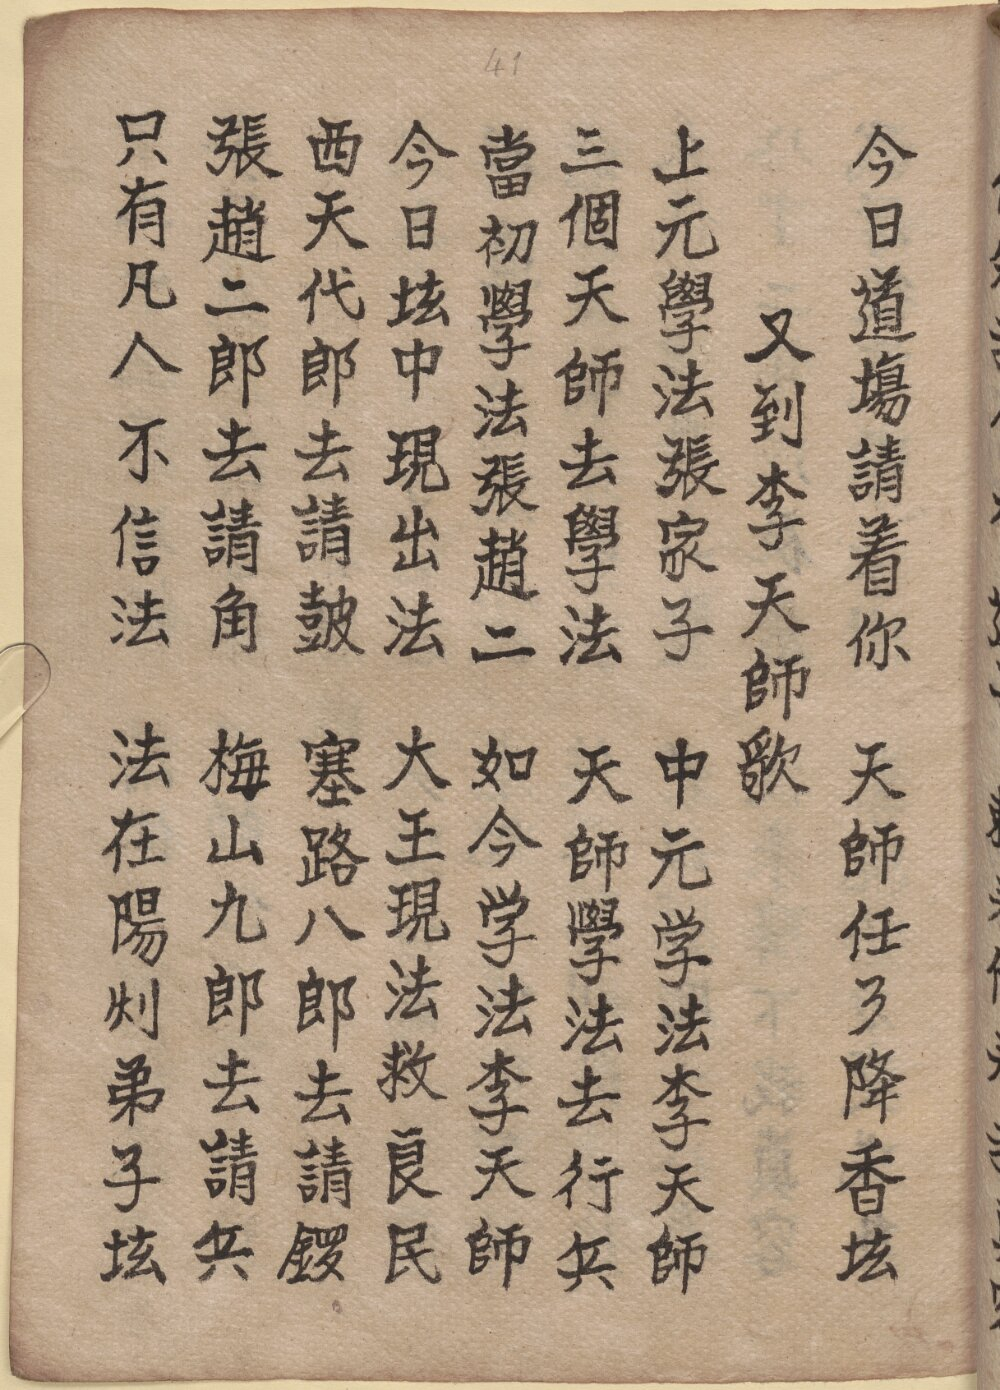 41
今日道塲請着你 天師任了降香坛
又到李天師歌
上元學法張家子 中元学法李天師
三個天師去學法 天師學法去行兵
當初學法張趙二 如今学法李天師
今日坛中現出法 大王現法救良民
西天代郎去請鼓 塞路八郎去請鑼
張趙二郎去請角 梅山九郎去請兵
只有凡人不信法 法在陽州弟子坛